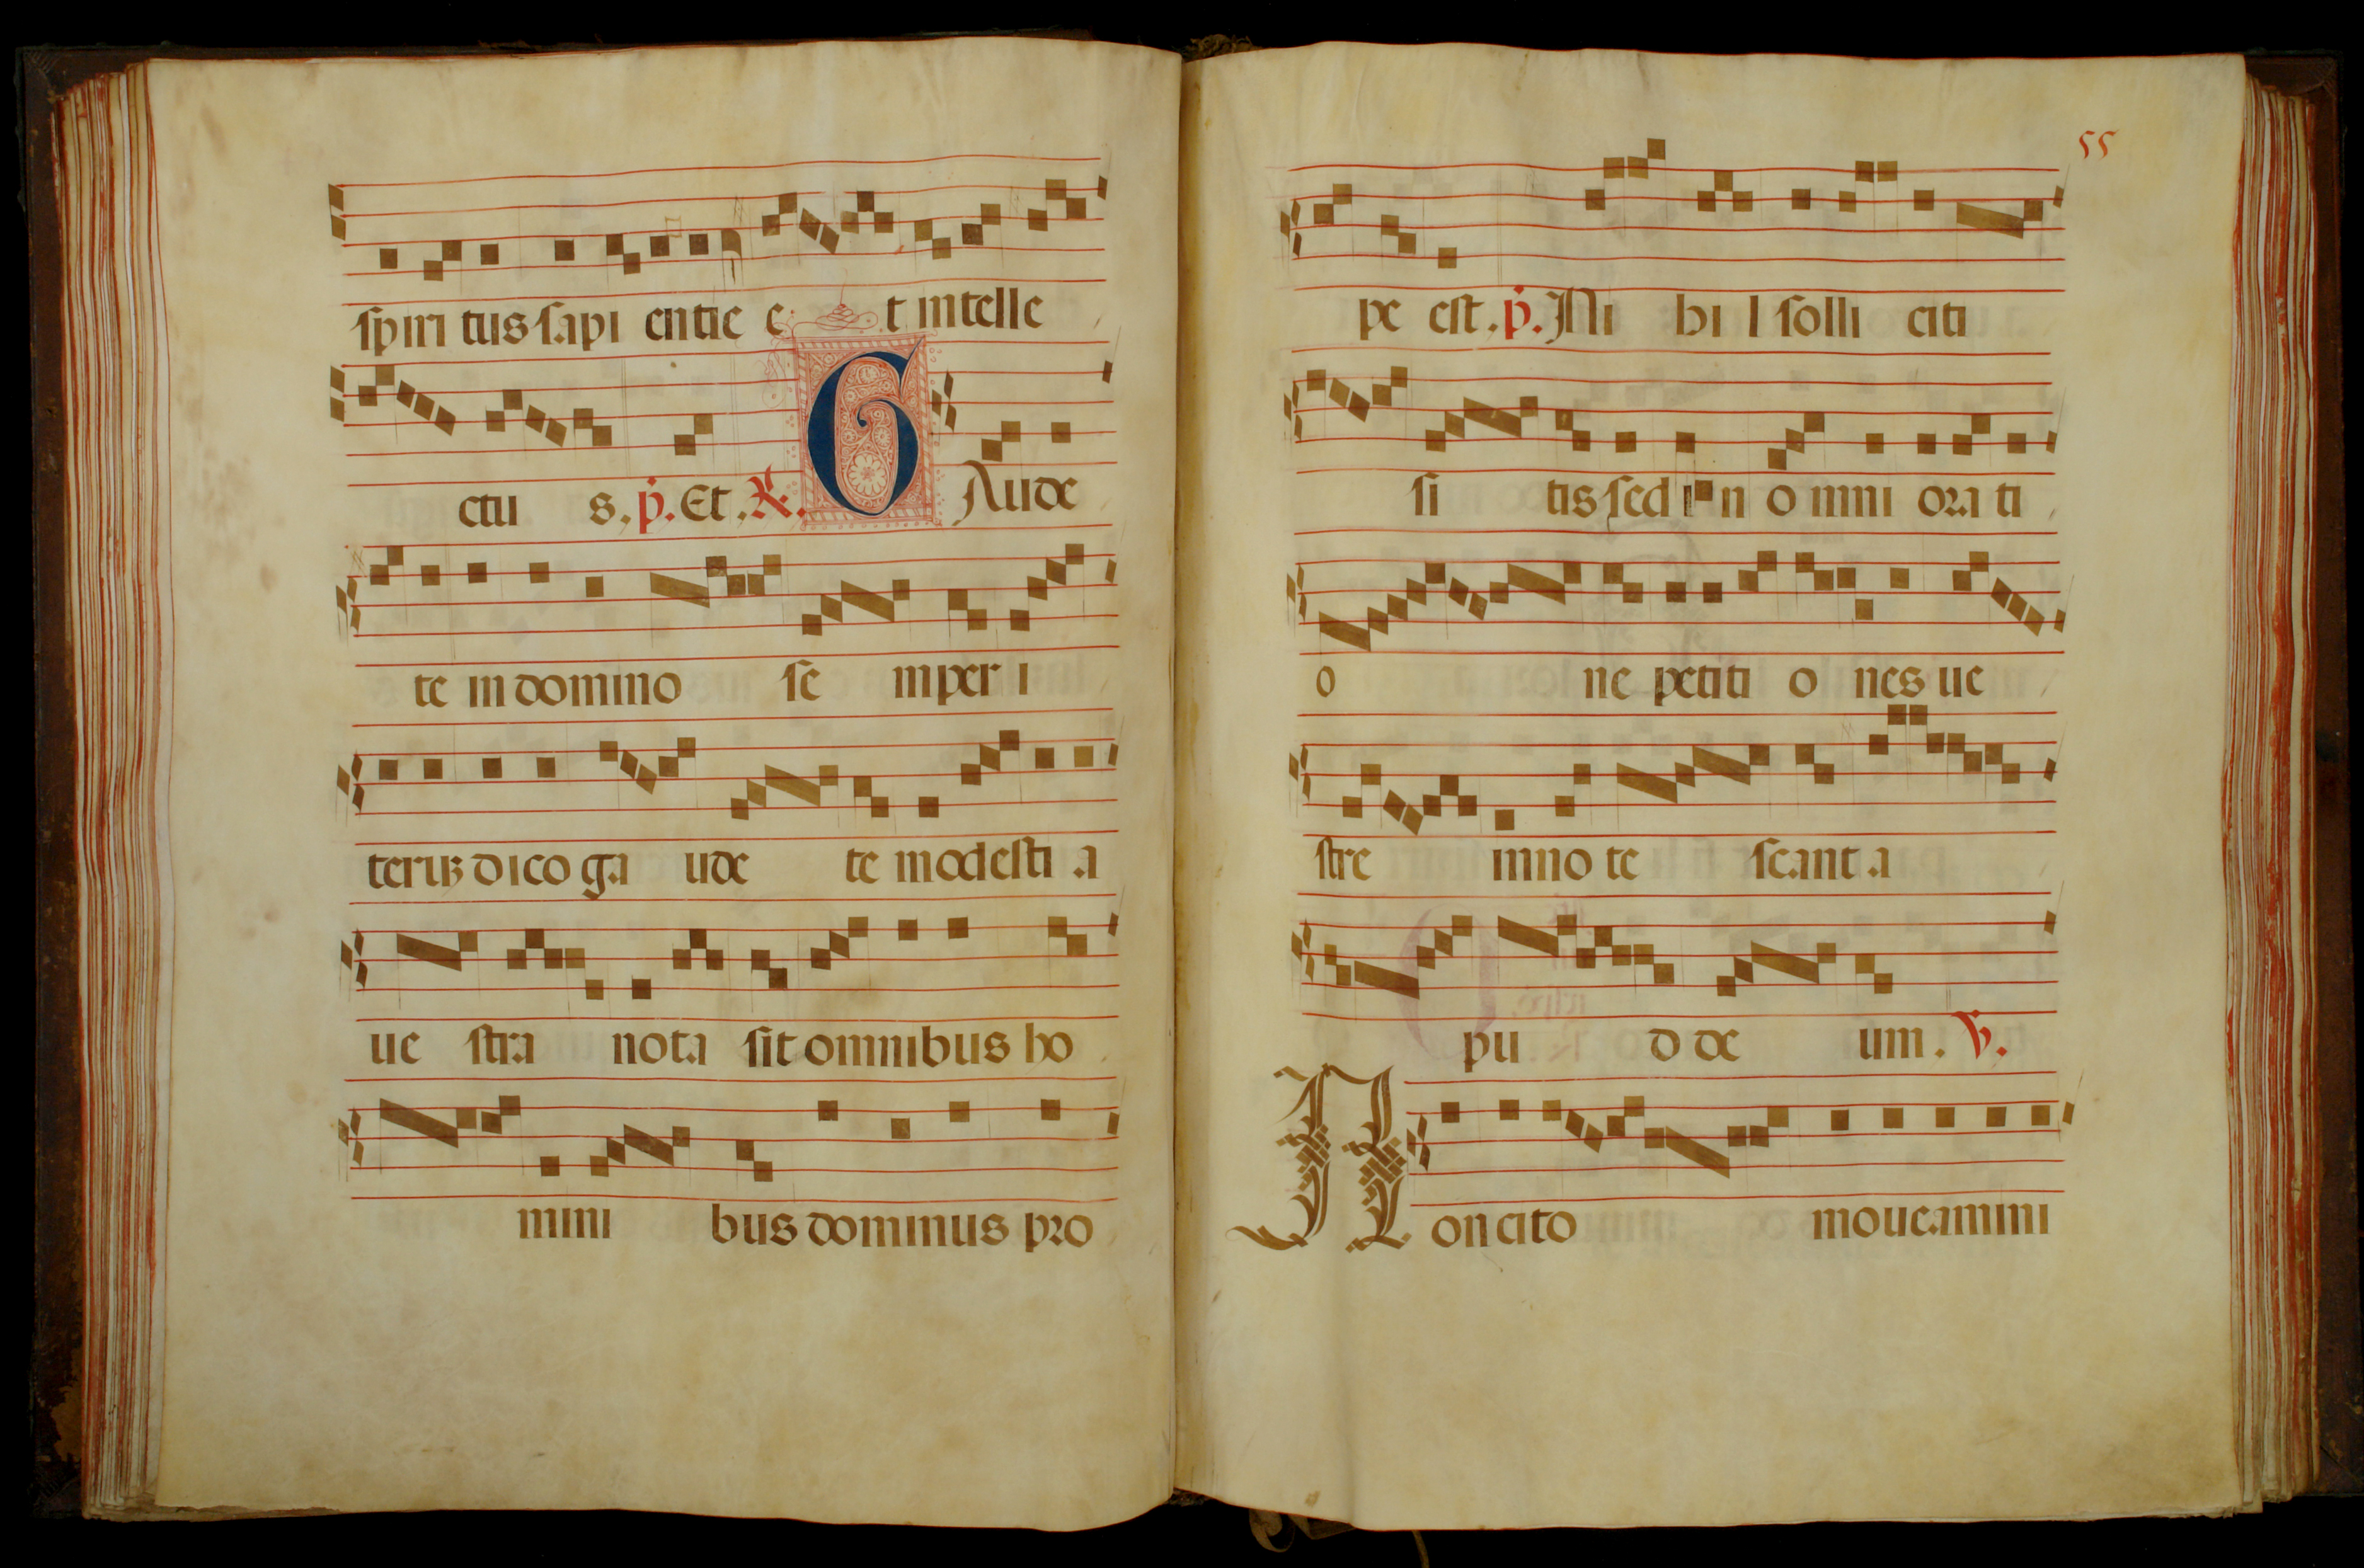 spiri tus sapi entie e t intelle
ctu s. p. Et. R. GAude
te in domino se mper i
teruʒ dico ga ude te modesti a
ue stra nota sit omnibus ho
mini bus dominus pro
55
pe est. p. Ni hi l solli citi
si tis sed in o mni ora ti
o ne petiti o nes ue
stre inno te scant a
pu d de um. V.
Non cito moueamini